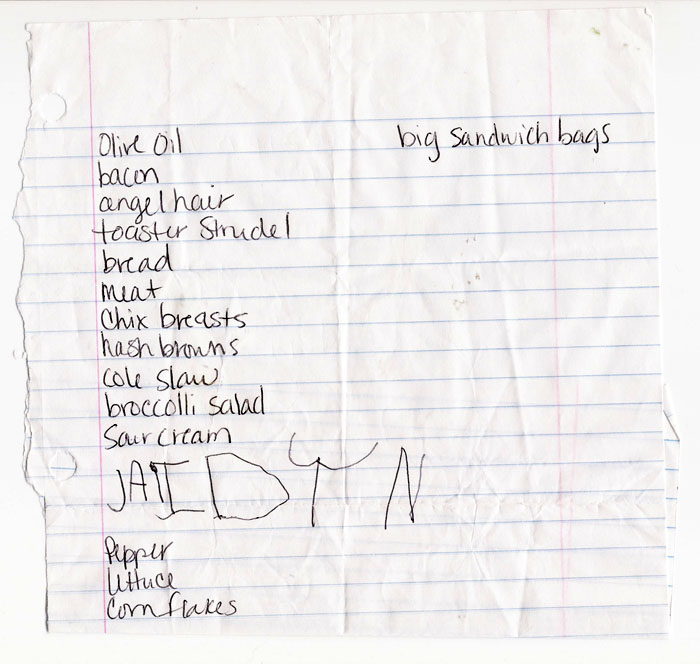 Olive Oil
big sandwich bags
bacon
angel hair
toaster Strudel
bread
meat
Chix breasts
hash browns
cole slaw
broccolli salad
Sour cream
JAIDYN
Pepper
lettuce
corn flakes